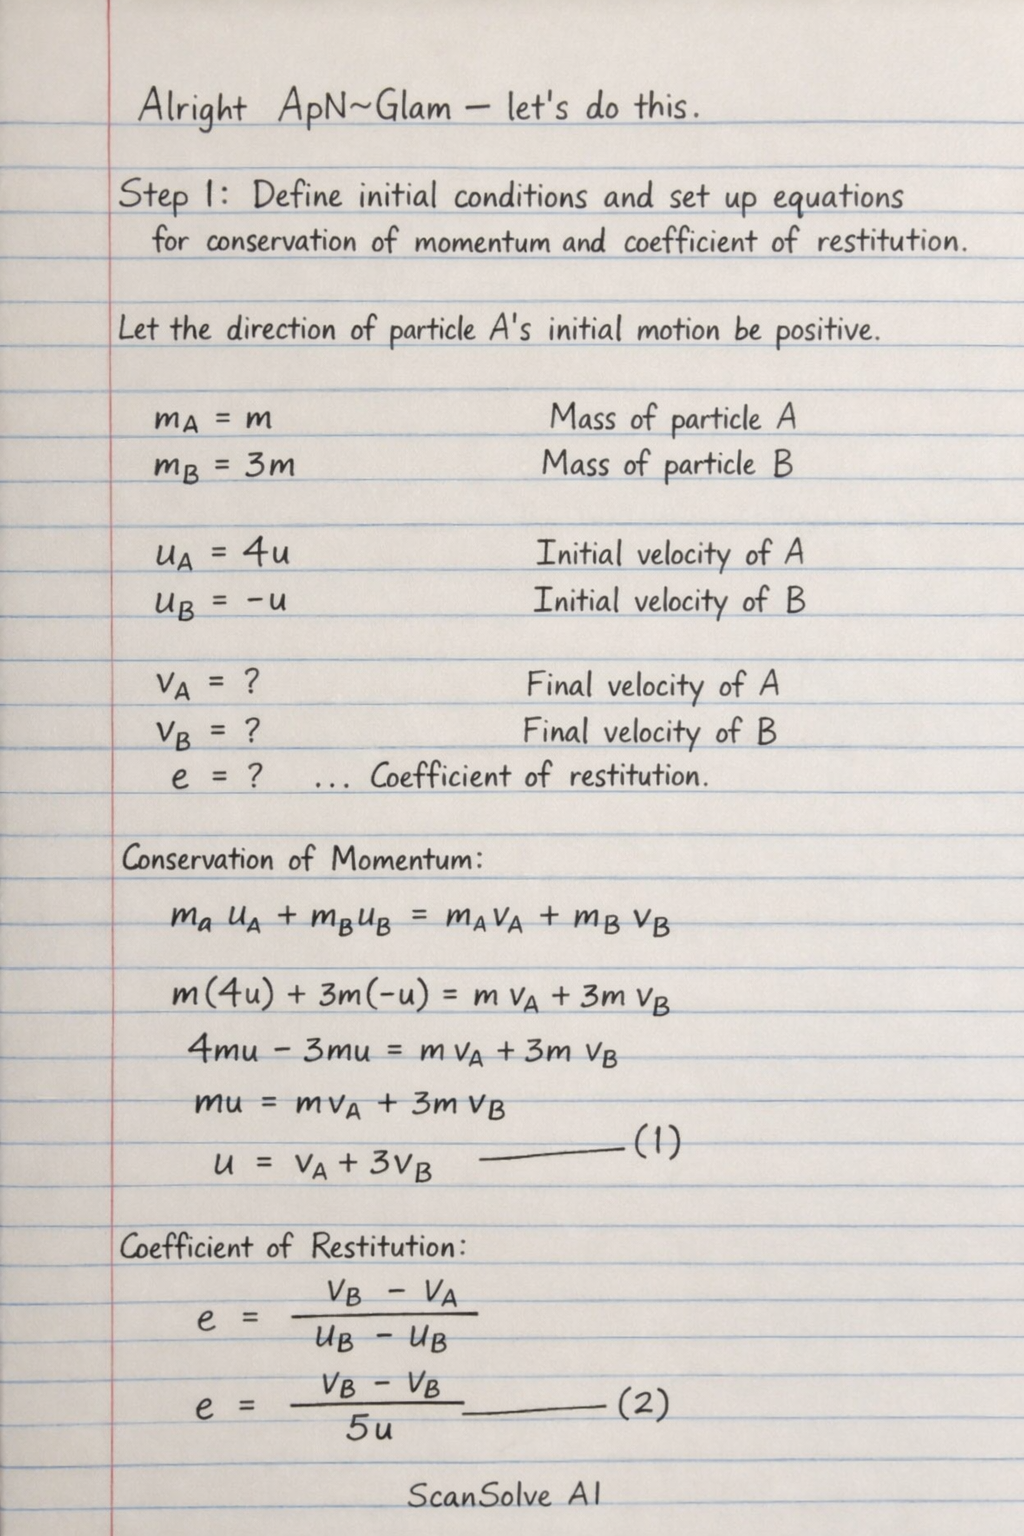 Alright ApN~Glam — let's do this.
Step 1: Define initial conditions and set up equations
for conservation of momentum and coefficient of restitution.
Let the direction of particle A's initial motion be positive.
m_A = m Mass of particle A
m_B = 3m Mass of particle B
u_A = 4u Initial velocity of A
u_B = -u Initial velocity of B
v_A = ? Final velocity of A
v_B = ? Final velocity of B
e = ? ... Coefficient of restitution.
Conservation of Momentum:
m_a u_A + m_B u_B = m_A v_A + m_B v_B
m(4u) + 3m(-u) = m v_A + 3m v_B
4mu - 3mu = m v_A + 3m v_B
mu = m v_A + 3m v_B
u = v_A + 3v_B —— (1)
Coefficient of Restitution:
e = (v_B - v_A) / (u_B - u_B)
e = (v_B - v_B) / 5u —— (2)
ScanSolve AI